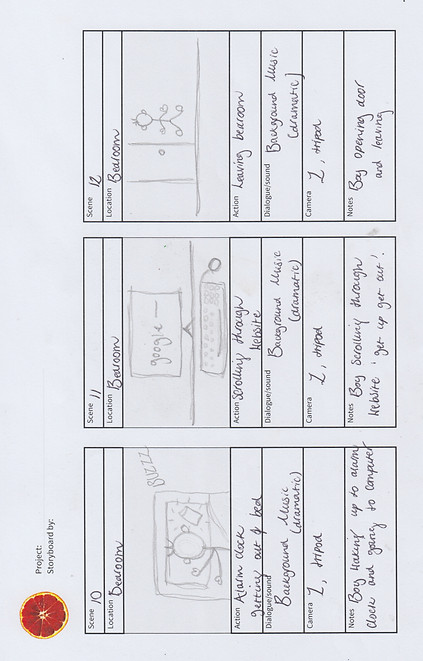 Project:
Storyboard by:
Scene 10
Location Bedroom
BUZZZ
Action Alarm clock
getting out of bed
Dialogue/sound
Background Music
(dramatic)
Camera 1, tripod
Notes Boy waking up to alarm
clock and going to computer
Scene 11
Location Bedroom
google
Action Scrolling through
website
Dialogue/sound
Background Music
(dramatic)
Camera 1, tripod
Notes Boy scrolling through
website 'get up get out'.
Scene 12
Location Bedroom
Action Leaving bedroom
Dialogue/sound
Background Music
(dramatic)
Camera 1, tripod
Notes Boy opening door
and leaving